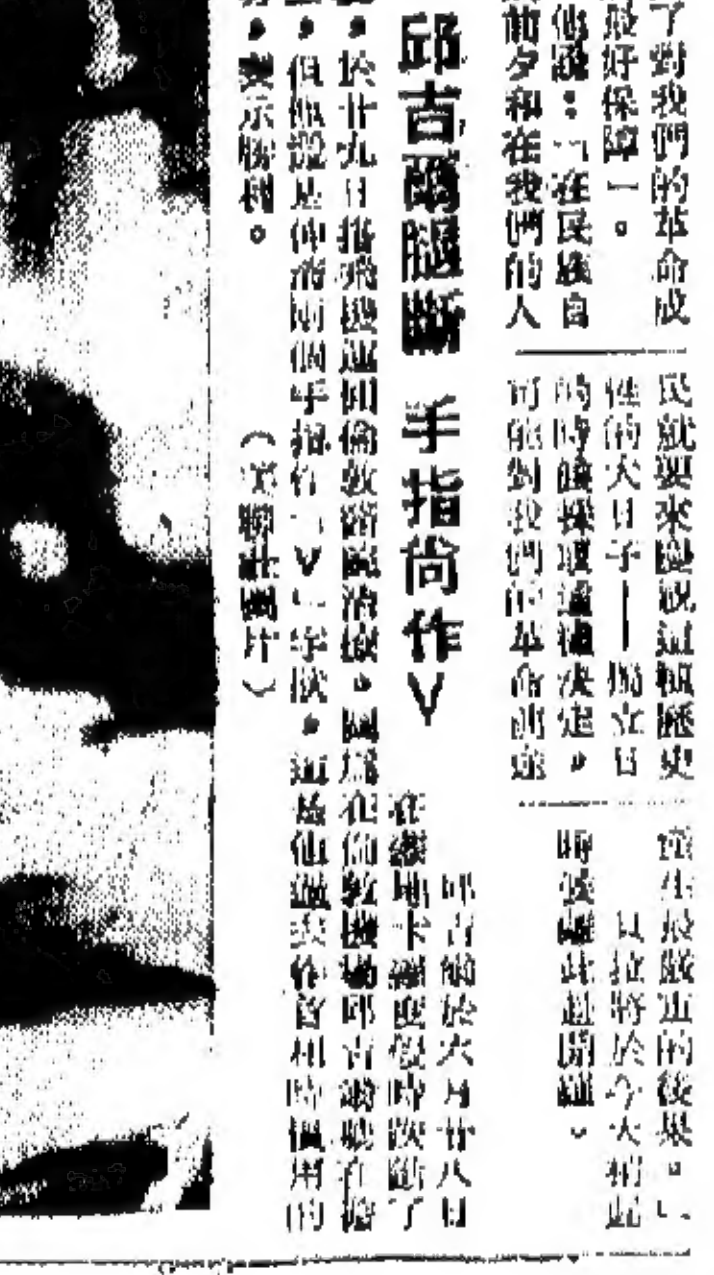 了對我們的革命成
最好保障」。
他說：「在民族自
前夕和在我們的人
民就要來慶祝這個歷史
性的大日子——獨立日
的時候採取這種決定，
可能對我們的革命前途
產生最嚴重的後果。」
貝拉將於今天稍
離此赴開羅。
邱吉爾腿斷 手指尚作V
邱吉爾於六月廿八日
在蒙地卡羅度假時跌斷了
，於廿九日搭飛機運回倫敦醫院治療。圖爲在倫敦機場邱吉爾臥在擔
，但他還是伸着兩個手指作「V」字狀，這是他過去作首相時慣用的
，表示勝利。
（美聯社圖片）